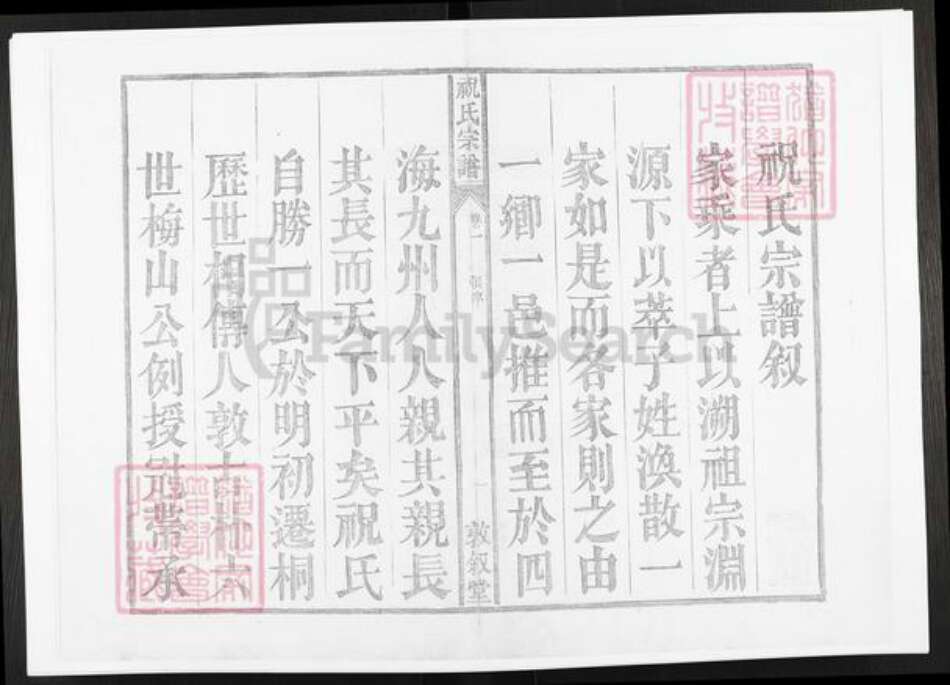 祝氏宗譜叙
家乘者上以溯祖宗淵
源下以萃子姓渙散一
家如是而各家則之由
一鄉一邑推而至於四
祝氏宗譜
卷一
敦叙堂
海九州人人親其親長
其長而天下平矣祝氏
自勝一公於明初遷桐
歷世相傳人敦
世梅山公例授冠帶承
FamilySearch